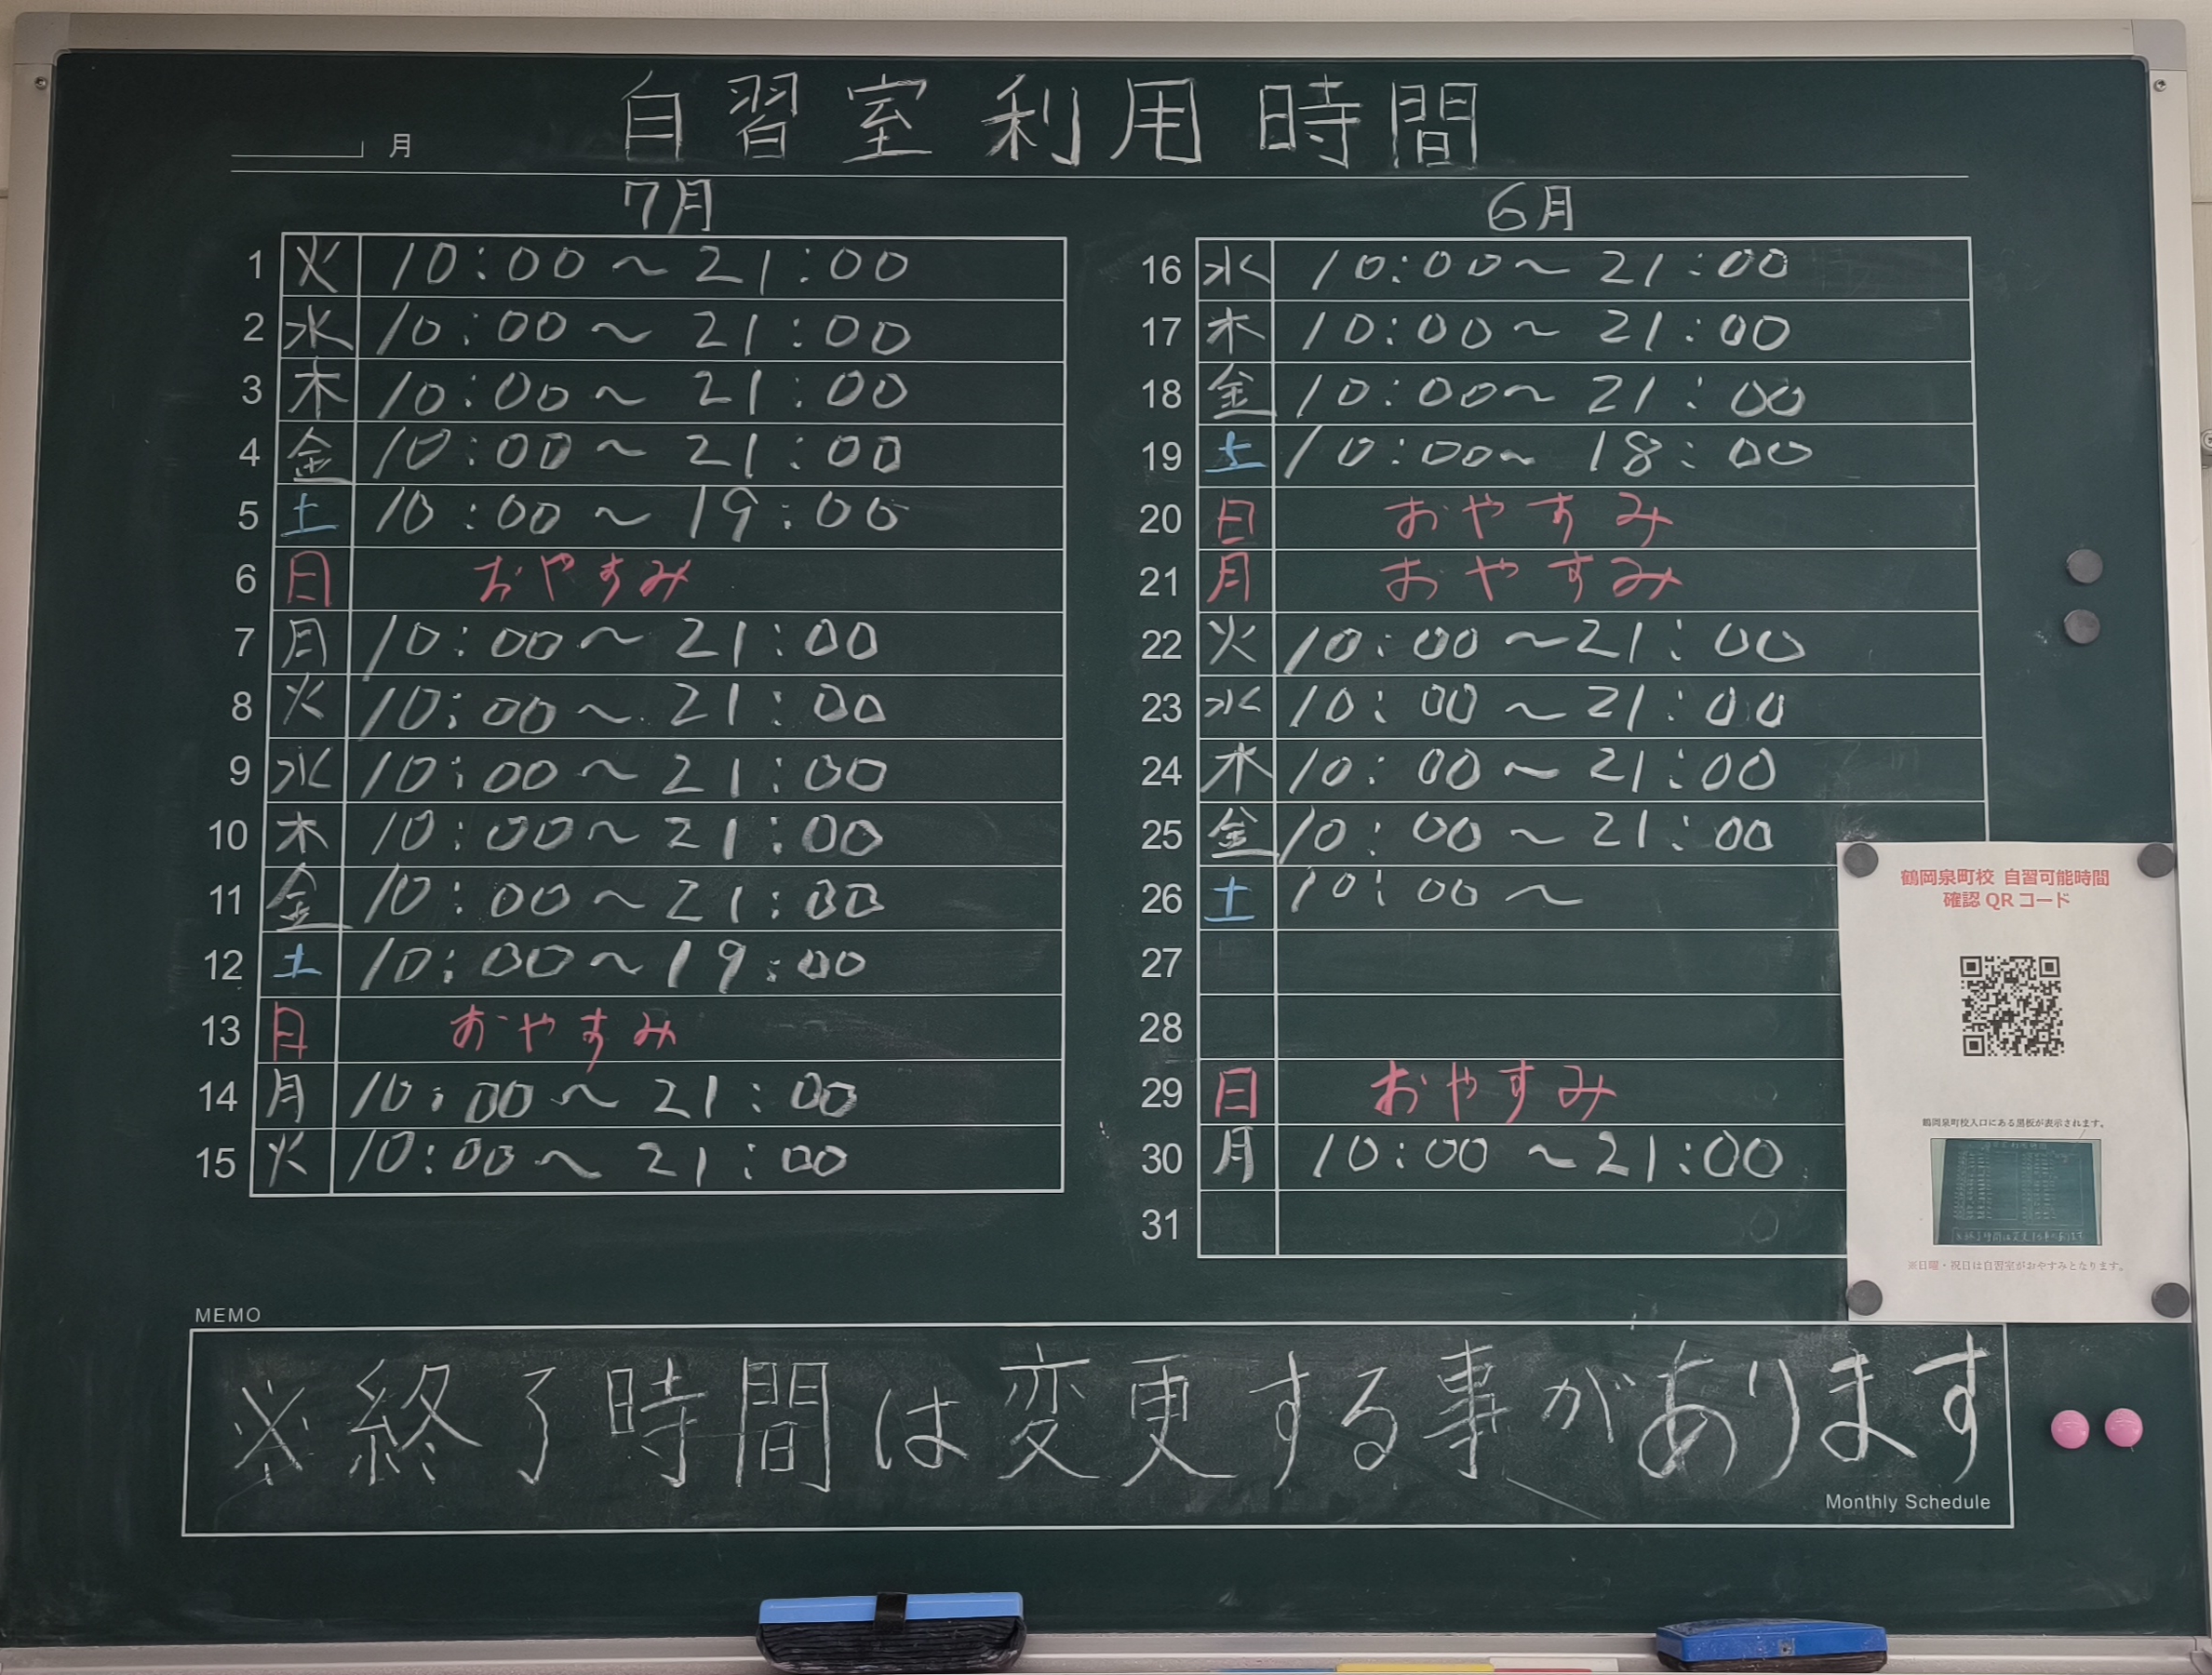 自習室利用時間
月
7月
1 火 10:00～21:00
2 水 10:00～21:00
3 木 10:00～21:00
4 金 10:00～21:00
5 土 10:00～19:00
6 日 おやすみ
7 月 10:00～21:00
8 火 10:00～21:00
9 水 10:00～21:00
10 木 10:00～21:00
11 金 10:00～21:00
12 土 10:00～19:00
13 日 おやすみ
14 月 10:00～21:00
15 火 10:00～21:00
6月
16 水 10:00～21:00
17 木 10:00～21:00
18 金 10:00～21:00
19 土 10:00～18:00
20 日 おやすみ
21 月 おやすみ
22 火 10:00～21:00
23 水 10:00～21:00
24 木 10:00～21:00
25 金 10:00～21:00
26 土 10:00～
27
28
29 日 おやすみ
30 月 10:00～21:00
31
鶴岡泉町校 自習可能時間
確認QRコード
鶴岡泉町校入口にある黒板が表示されます。
※日曜・祝日は自習室がおやすみとなります。
MEMO
※終了時間は変更する事があります
Monthly Schedule